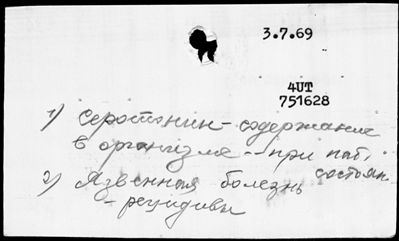 3.7.69
4UT
751628
1) Серотонин - содержание
в организме -- при пат.
состоян.
2) Язвенная болезнь
- рецидивы